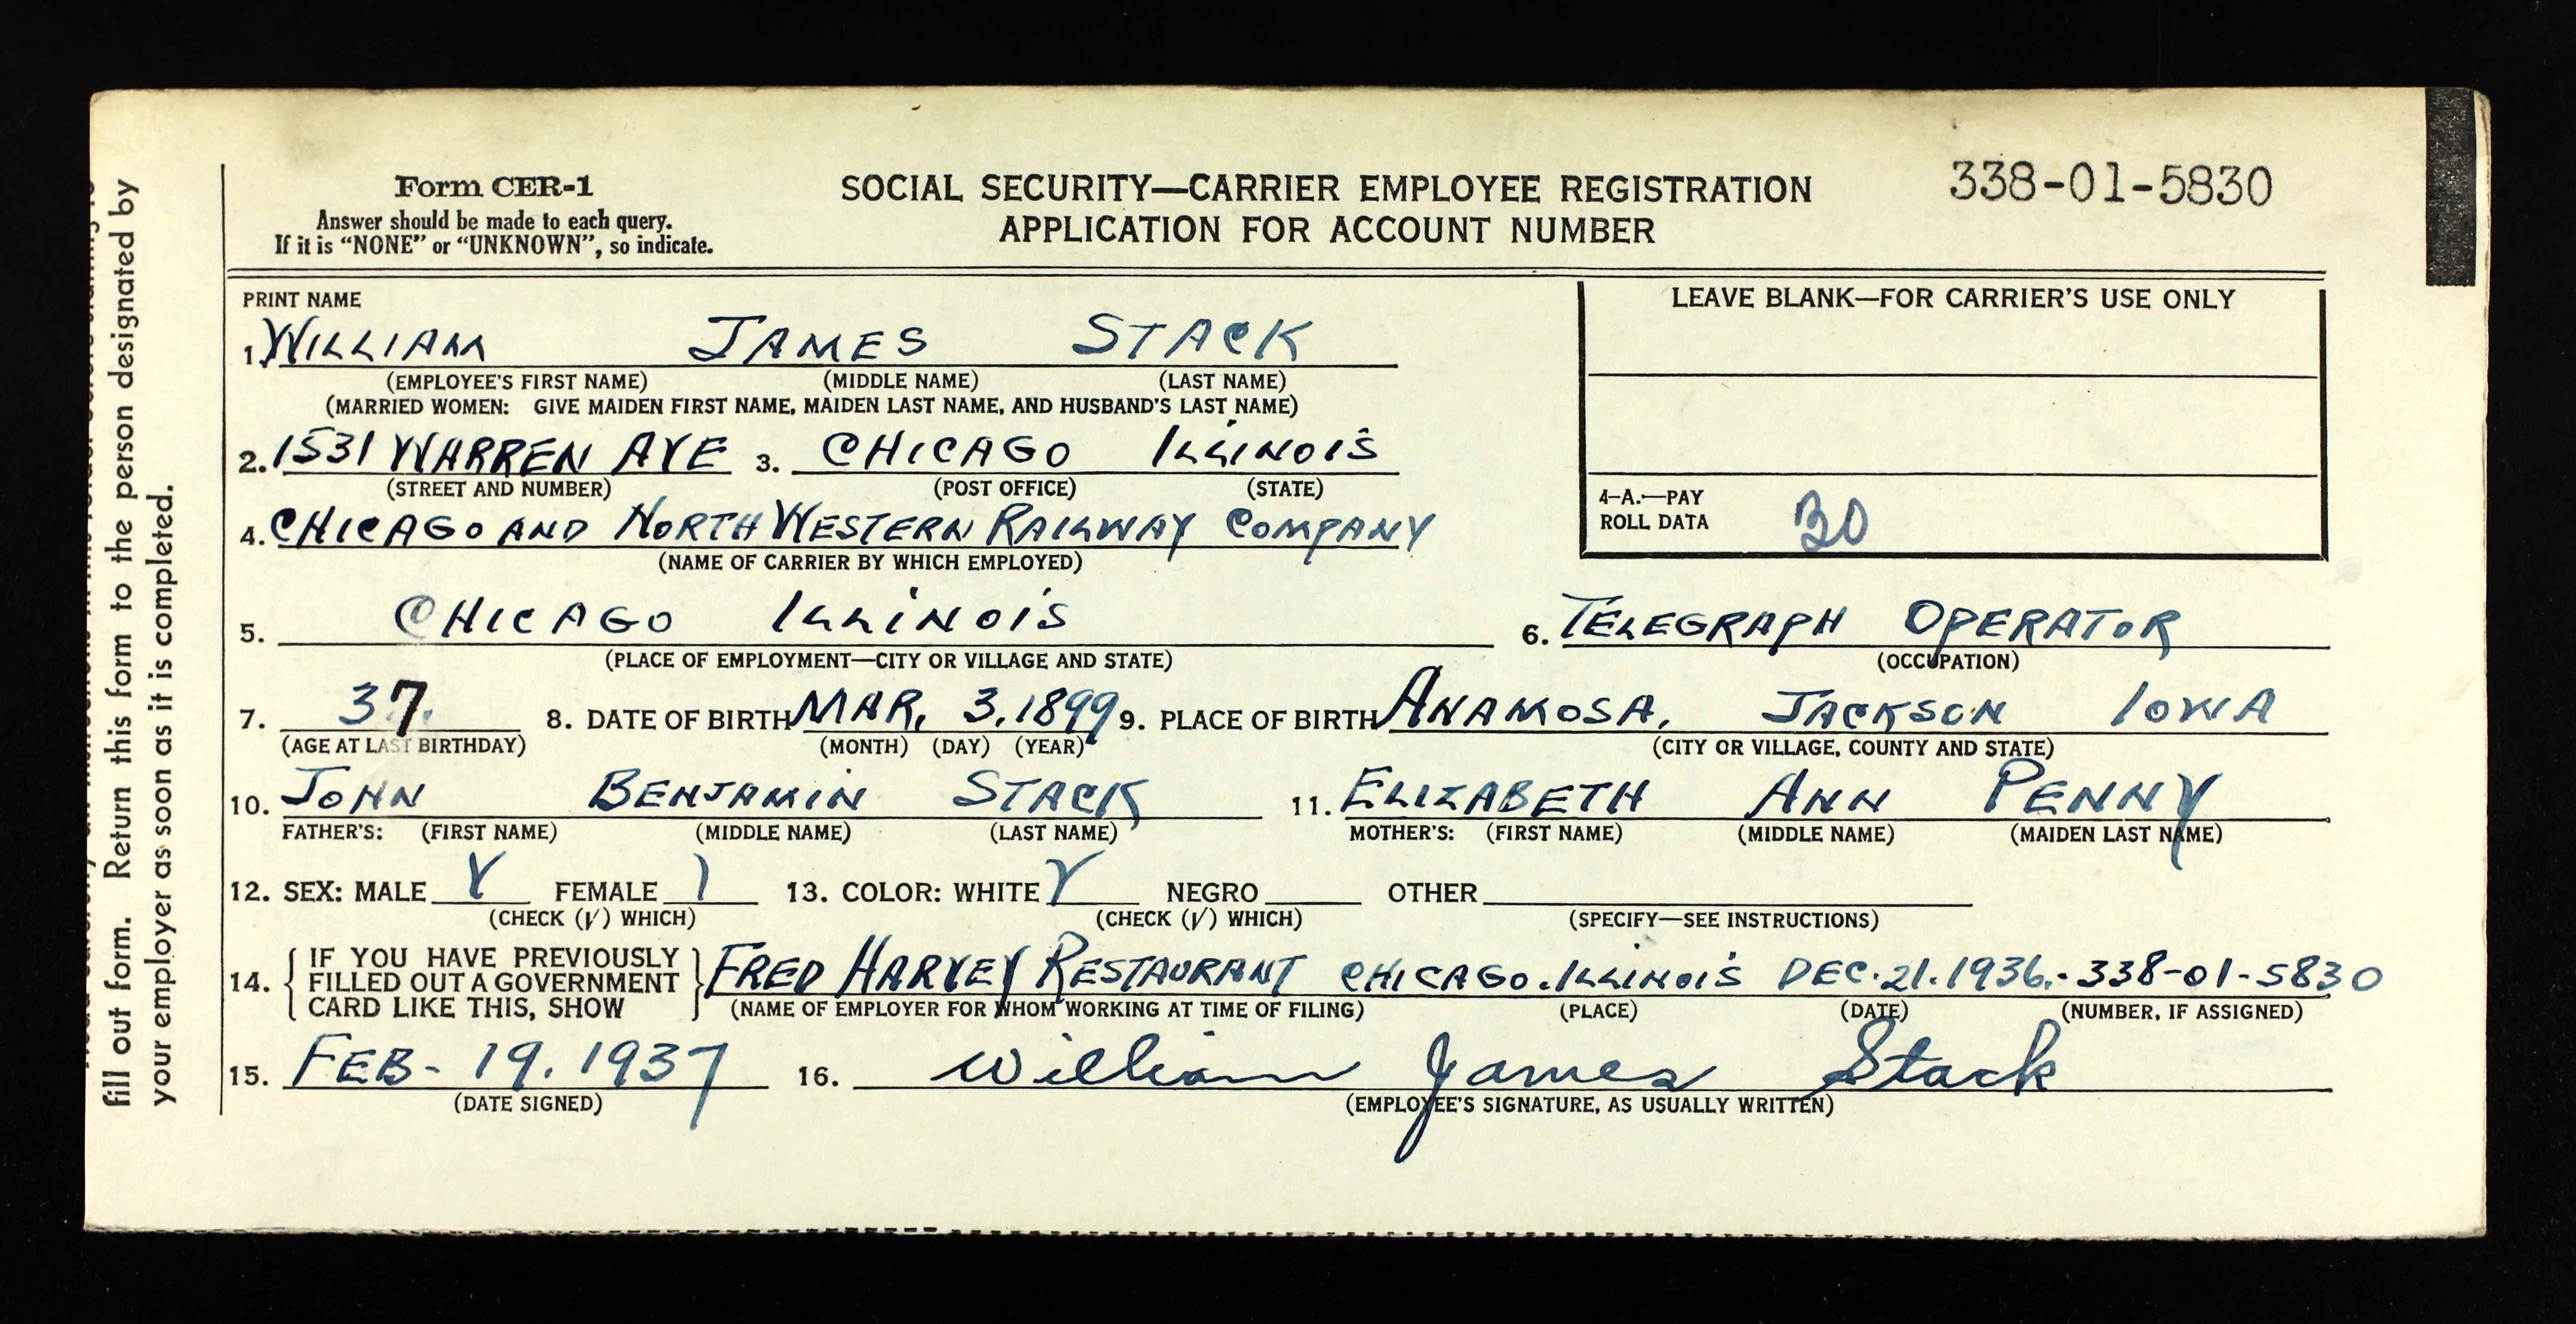 Form CER-1
Answer should be made to each query.
If it is "NONE" or "UNKNOWN", so indicate.
SOCIAL SECURITY—CARRIER EMPLOYEE REGISTRATION
APPLICATION FOR ACCOUNT NUMBER
338-01-5830
PRINT NAME
1. WILLIAM JAMES STACK
(EMPLOYEE'S FIRST NAME) (MIDDLE NAME) (LAST NAME)
(MARRIED WOMEN: GIVE MAIDEN FIRST NAME, MAIDEN LAST NAME, AND HUSBAND'S LAST NAME)
LEAVE BLANK—FOR CARRIER'S USE ONLY
2. 1531 WARREN AVE 3. CHICAGO ILLINOIS
(STREET AND NUMBER) (POST OFFICE) (STATE)
4. CHICAGO AND NORTH WESTERN RAILWAY COMPANY
(NAME OF CARRIER BY WHICH EMPLOYED)
4-A.—PAY
ROLL DATA 30
5. CHICAGO ILLINOIS 6. TELEGRAPH OPERATOR
(PLACE OF EMPLOYMENT—CITY OR VILLAGE AND STATE) (OCCUPATION)
7. 37. 8. DATE OF BIRTH MAR. 3, 1899 9. PLACE OF BIRTH ANAMOSA, JACKSON IOWA
(AGE AT LAST BIRTHDAY) (MONTH) (DAY) (YEAR) (CITY OR VILLAGE, COUNTY AND STATE)
10. JOHN BENJAMIN STACK 11. ELIZABETH ANN PENNY
FATHER'S: (FIRST NAME) (MIDDLE NAME) (LAST NAME) MOTHER'S: (FIRST NAME) (MIDDLE NAME) (MAIDEN LAST NAME)
12. SEX: MALE FEMALE 13. COLOR: WHITE NEGRO OTHER
(CHECK (√) WHICH) (CHECK (√) WHICH) (SPECIFY—SEE INSTRUCTIONS)
14. IF YOU HAVE PREVIOUSLY
FILLED OUT A GOVERNMENT
CARD LIKE THIS, SHOW
FRED HARVEY RESTAURANT CHICAGO. ILLINOIS DEC. 21. 1936.- 338-01-5830
(NAME OF EMPLOYER FOR WHOM WORKING AT TIME OF FILING) (PLACE) (DATE) (NUMBER, IF ASSIGNED)
15. FEB- 19. 1937 16. William James Stack
(DATE SIGNED) (EMPLOYEE'S SIGNATURE, AS USUALLY WRITTEN)
fill out form. Return this form to the person designated by
your employer as soon as it is completed.